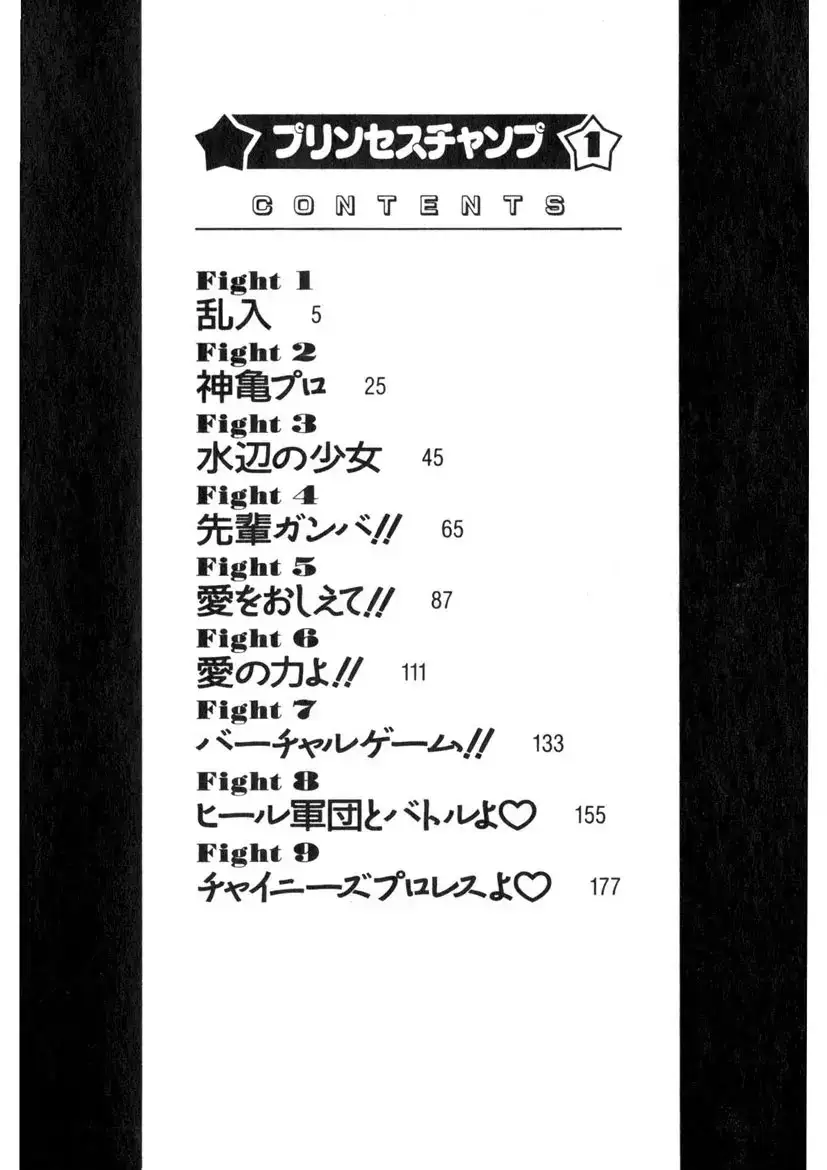 プリンセスチャンプ 1
CONTENTS
Fight 1
乱入 5
Fight 2
神亀プロ 25
Fight 3
水辺の少女 45
Fight 4
先輩ガンバ!! 65
Fight 5
愛をおしえて!! 87
Fight 6
愛の力よ!! 111
Fight 7
バーチャルゲーム!! 133
Fight 8
ヒール軍団とバトルよ♡ 155
Fight 9
チャイニーズプロレスよ♡ 177